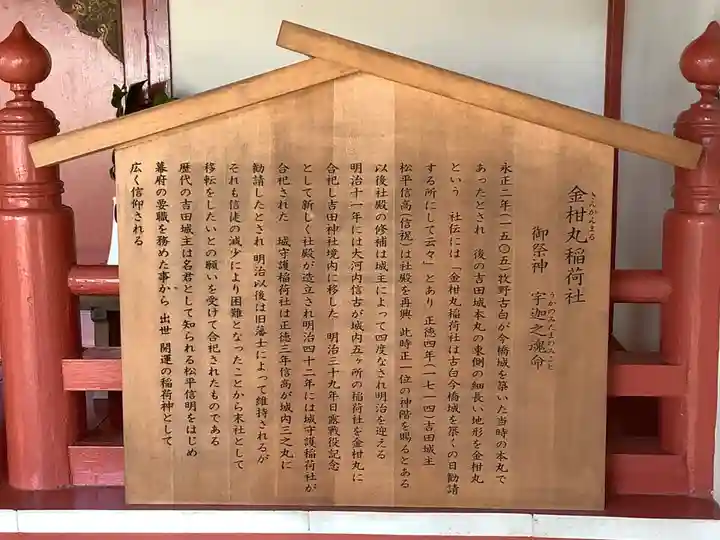 きんかんまる
金柑丸稲荷社
うかのみたまのみこと
御祭神 宇迦之魂命
永正二年(一五〇五)牧野古白が今橋城を築いた当時の本丸で
あったとされ 後の吉田城本丸の東側の細長い地形を金柑丸
という 社伝には「金柑丸稲荷社は古白今橋城を築くの日勧請
する所にして云々」とあり 正徳四年(一七一四)吉田城主
松平信高(信祝)は社殿を再興 此時正一位の神階を賜るとある
以後社殿の修補は城主によって四度なされ明治を迎える
明治十一年には大河内信古が城内五ヶ所の稲荷社を金柑丸に
合祀し吉田神社境内に移した 明治三十九年日露戦役記念
として新しく社殿が造立され明治四十二年には城守護稲荷社が
合祀された 城守護稲荷社は正徳三年信高が城内三之丸に
勧請したとされ 明治以後は旧藩士によって維持されるが
それも信徒の減少により困難となったことから末社として
移転をしたいとの願いを受けて合祀されたものである
歴代の吉田城主は名君として知られる松平信明をはじめ
幕府の要職を務めた事から 出世 開運の稲荷神として
広く信仰される